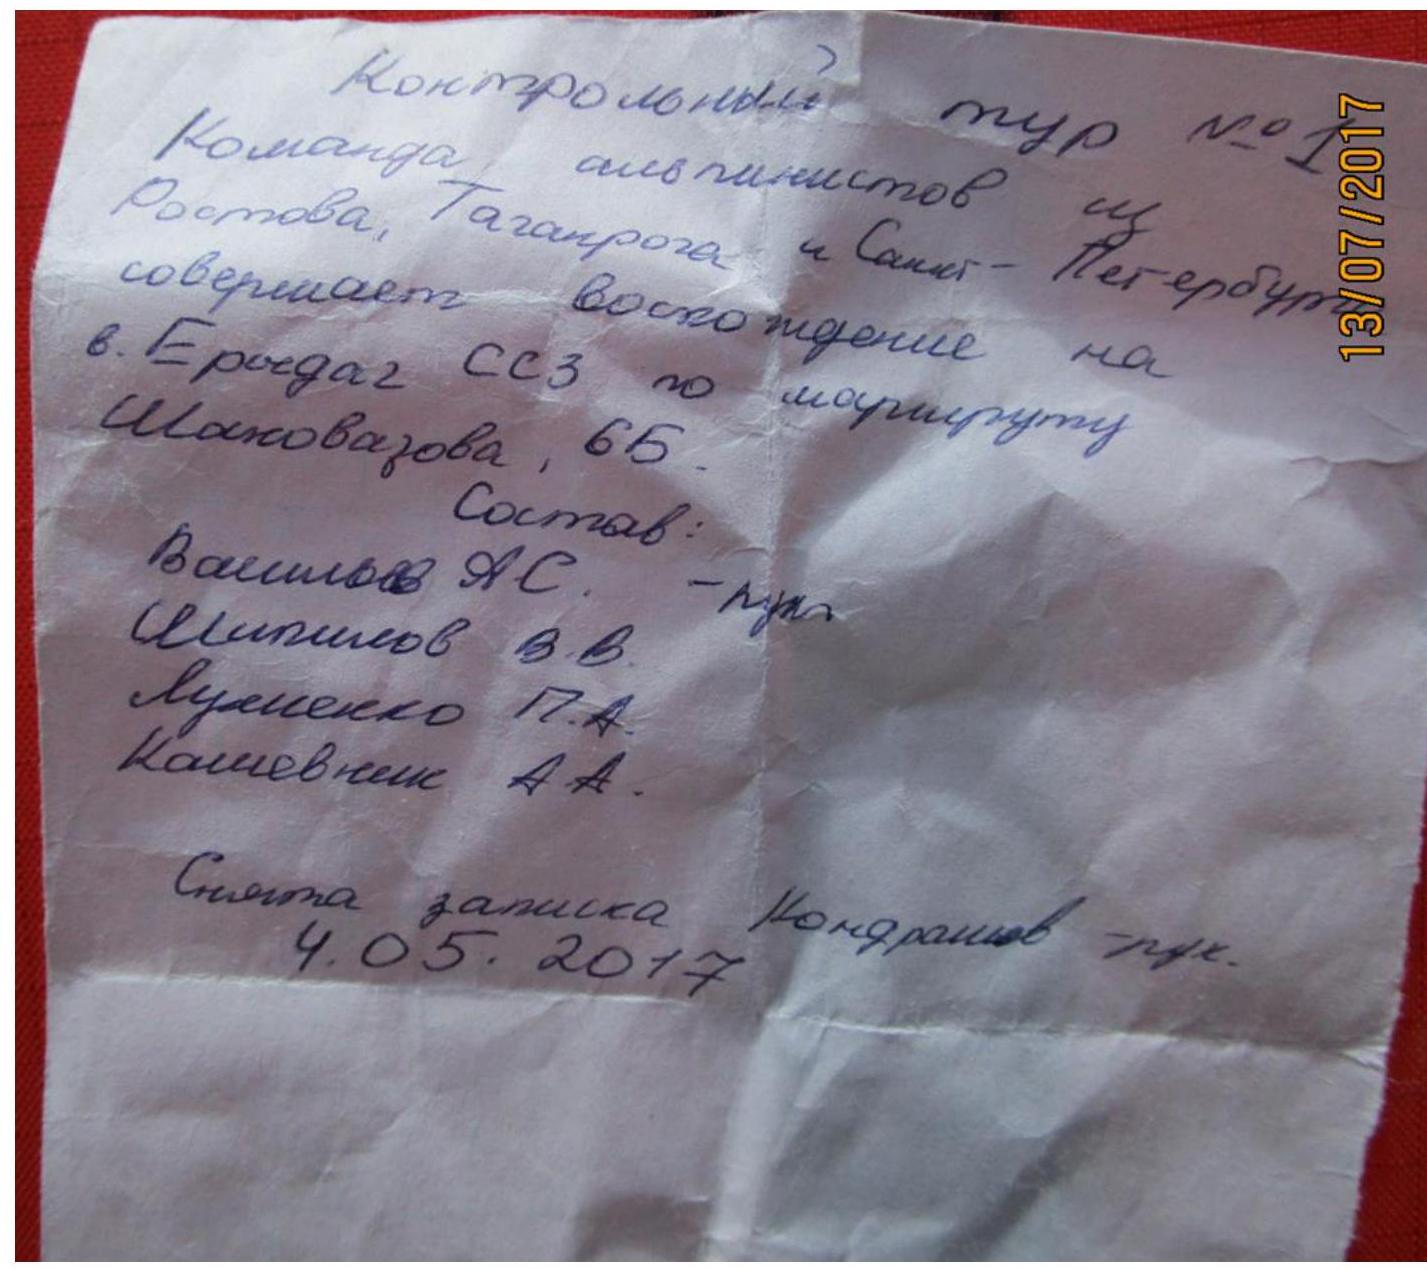 Контрольный тур №1
Команда альпинистов из
Ростова, Таганрога и Санкт-Петербурга
совершает восхождение на
в. Ерыдаг ССЗ по маршруту
Шаховазова, 6Б.
Состав:
Васильев А С. - рук
Шипилов В.В.
Лухненко П.А.
Кашевник А А.
Снята записка Кондрашов - рук.
4.05.2017
13/07/2017